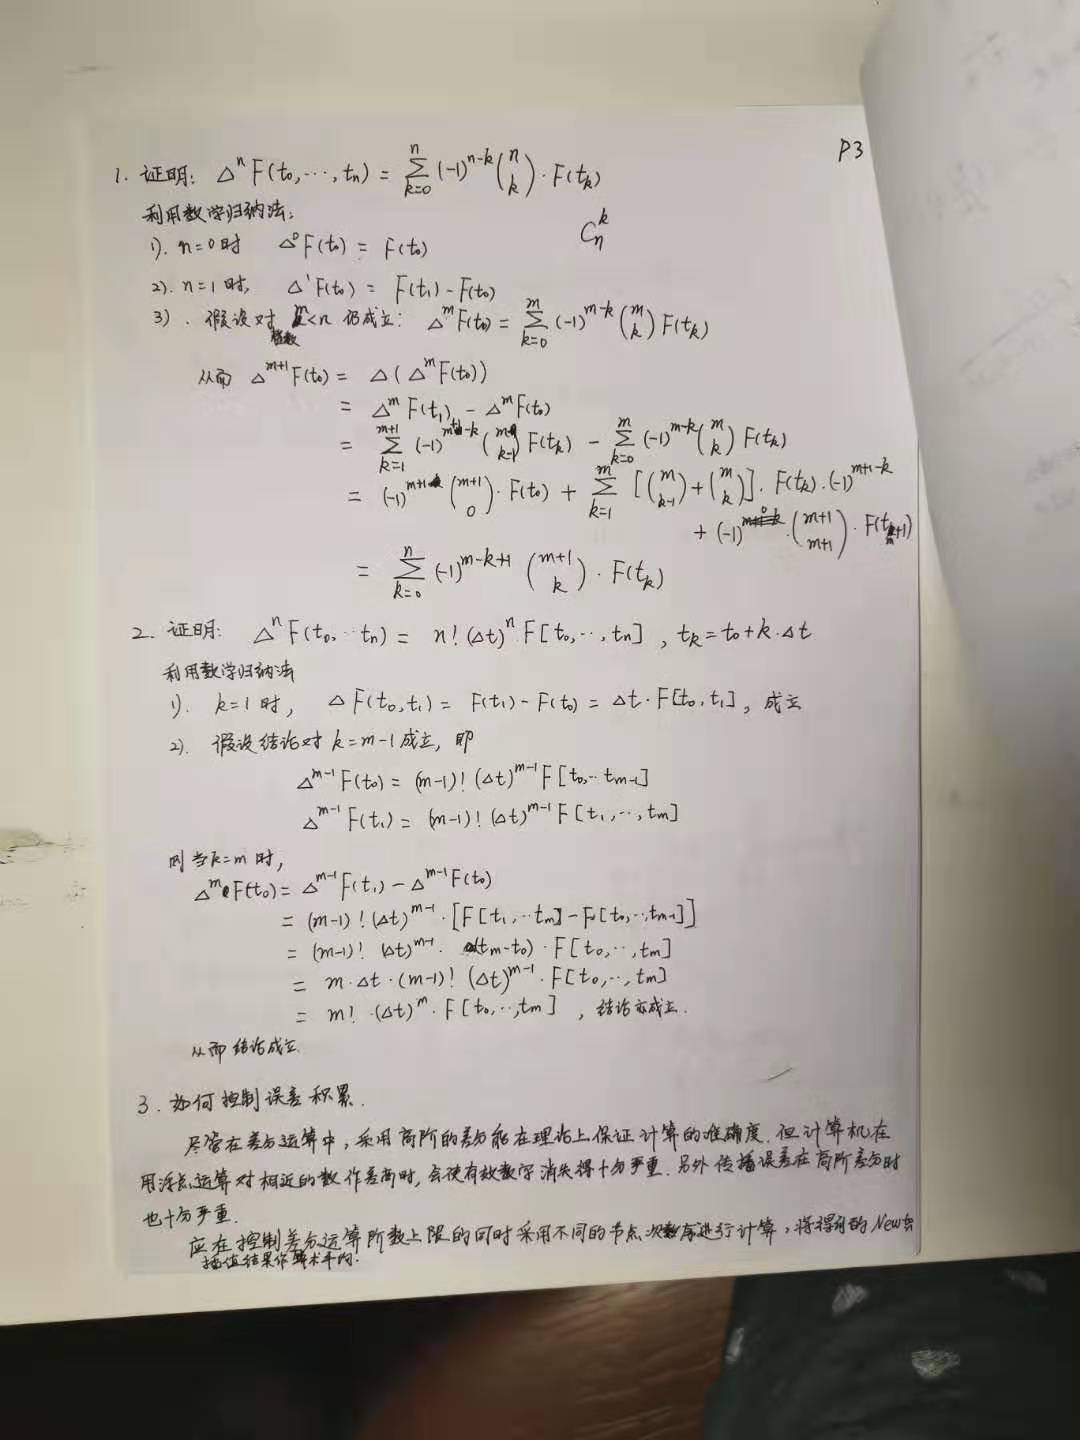 P3
1. 证明: △ⁿF(t₀,⋯,tₙ) = ∑_{k=0}^{n} (-1)^{n-k} (n k)·F(t_k)
利用数学归纳法: C_n^k
1). n=0时 △⁰F(t₀) = F(t₀)
2). n=1时, △¹F(t₀) = F(t₁)-F(t₀)
3). 假设对 m<n 仍成立: △^m F(t₀) = ∑_{k=0}^{m} (-1)^{m-k} (m k) F(t_k)
从而 △^{m+1}F(t₀) = △(△^m F(t₀))
= △^m F(t₁) - △^m F(t₀)
= ∑_{k=1}^{m+1} (-1)^{m+1-k} (m k-1) F(t_k) - ∑_{k=0}^{m} (-1)^{m-k} (m k) F(t_k)
= (-1)^{m+1} (m+1 0)·F(t₀) + ∑_{k=1}^{m} [(m k-1)+(m k)]·F(t_k)·(-1)^{m+1-k}
+ (-1)^0·(m+1 m+1)·F(t_{m+1})
= ∑_{k=0}^{n} (-1)^{m-k+1} (m+1 k)·F(t_k)
2. 证明: △ⁿF(t₀,⋯tₙ) = n!(△t)ⁿF[t₀,⋯,tₙ], t_k=t₀+k·△t
利用数学归纳法
1). k=1时, △F(t₀,t₁) = F(t₁)-F(t₀) = △t·F[t₀,t₁], 成立
2). 假设结论对k=m-1成立, 即
△^{m-1}F(t₀) = (m-1)!(△t)^{m-1}F[t₀,⋯t_{m-1}]
△^{m-1}F(t₁) = (m-1)!(△t)^{m-1}F[t₁,⋯,t_m]
则当k=m时,
△^m F(t₀) = △^{m-1}F(t₁)-△^{m-1}F(t₀)
= (m-1)!(△t)^{m-1}·[F[t₁,⋯t_m]-F[t₀,⋯,t_{m-1}]]
= (m-1)! (△t)^{m-1}·(t_m-t₀)·F[t₀,⋯,t_m]
= m·△t·(m-1)!(△t)^{m-1}·F[t₀,⋯,t_m]
= m!·(△t)^m·F[t₀,⋯,t_m], 结论亦成立.
从而结论成立.
3. 如何控制误差积累.
尽管在差分运算中, 采用高阶的差分能在理论上保证计算的准确度. 但计算机在
用浮点运算对相近的数作差商时, 会使有效数字消失得十分严重. 另外传播误差在高阶差分时
也十分严重.
应在控制差分运算阶数上限的同时采用不同的节点次序进行计算, 将得到的Newton
插值结果作算术平均.